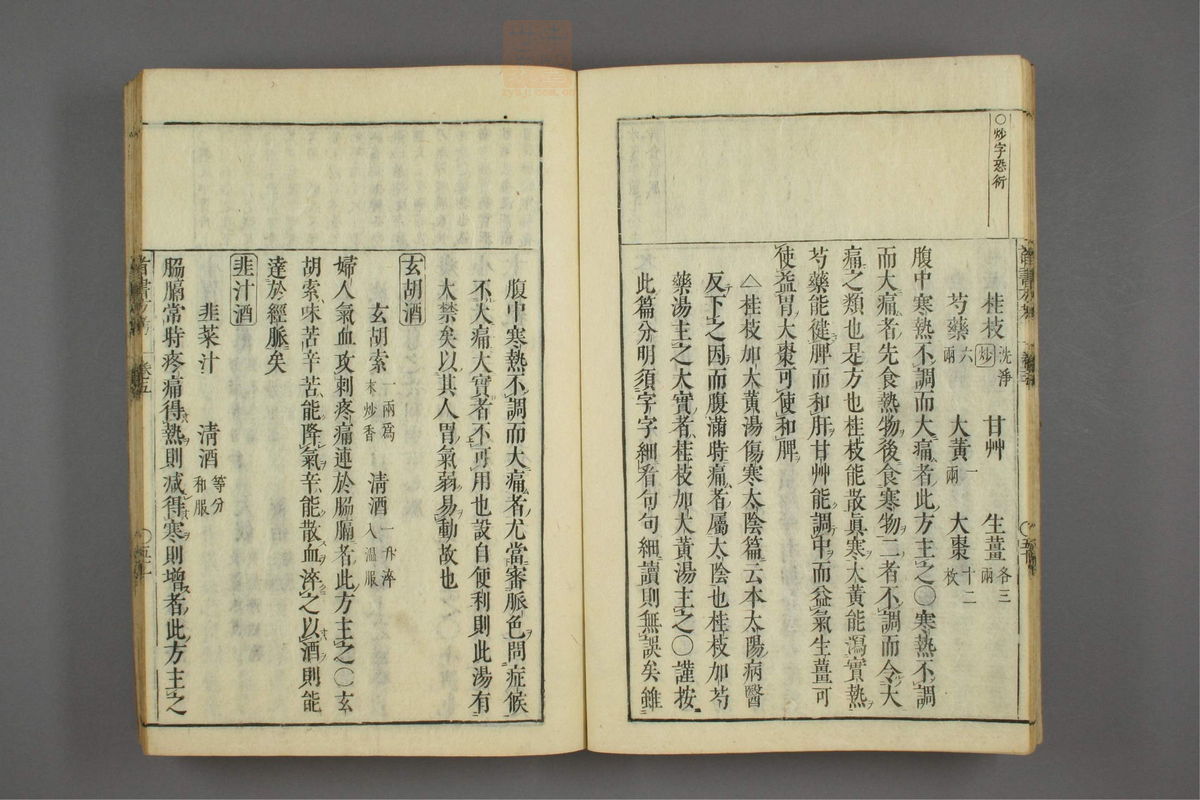 ○炒字恐衍
桂枝 洗淨炒 甘艸 生薑 各三兩
芍藥 六兩 大黃 一兩 大棗 十二枚
腹中寒熱不調而大痛者此方主之○寒熱不調
而大痛者先食熱物後食寒物二者不調而令大
痛之類也是方也桂枝能散真寒大黃能瀉實熱
芍藥能健脾而和肝甘艸能調中而益氣生薑可
使益胃大棗可使和脾
△桂枝加大黃湯傷寒太陰篇云本太陽病醫
反下之因而腹滿時痛者屬太陰也桂枝加芍
藥湯主之大實者桂枝加大黃湯主之○謹按
此篇分明須字字細看句句細讀則無誤矣雖
腹中寒熱不調而大痛者尤當審脈色問症候
不大痛大實者不可用也設自便利則此湯有
大禁矣以其人胃氣弱易動故也
玄胡酒
玄胡索 一兩為末炒香 清酒 一升淬入溫服
婦人氣血攻刺疼痛連於脇膈者此方主之○玄
胡索味苦辛苦能降氣辛能散血淬之以酒則能
達於經脈矣
韭汁酒
韭菜汁 清酒 等分和服
脇膈常時疼痛得熱則減得寒則增者此方主之
卷五